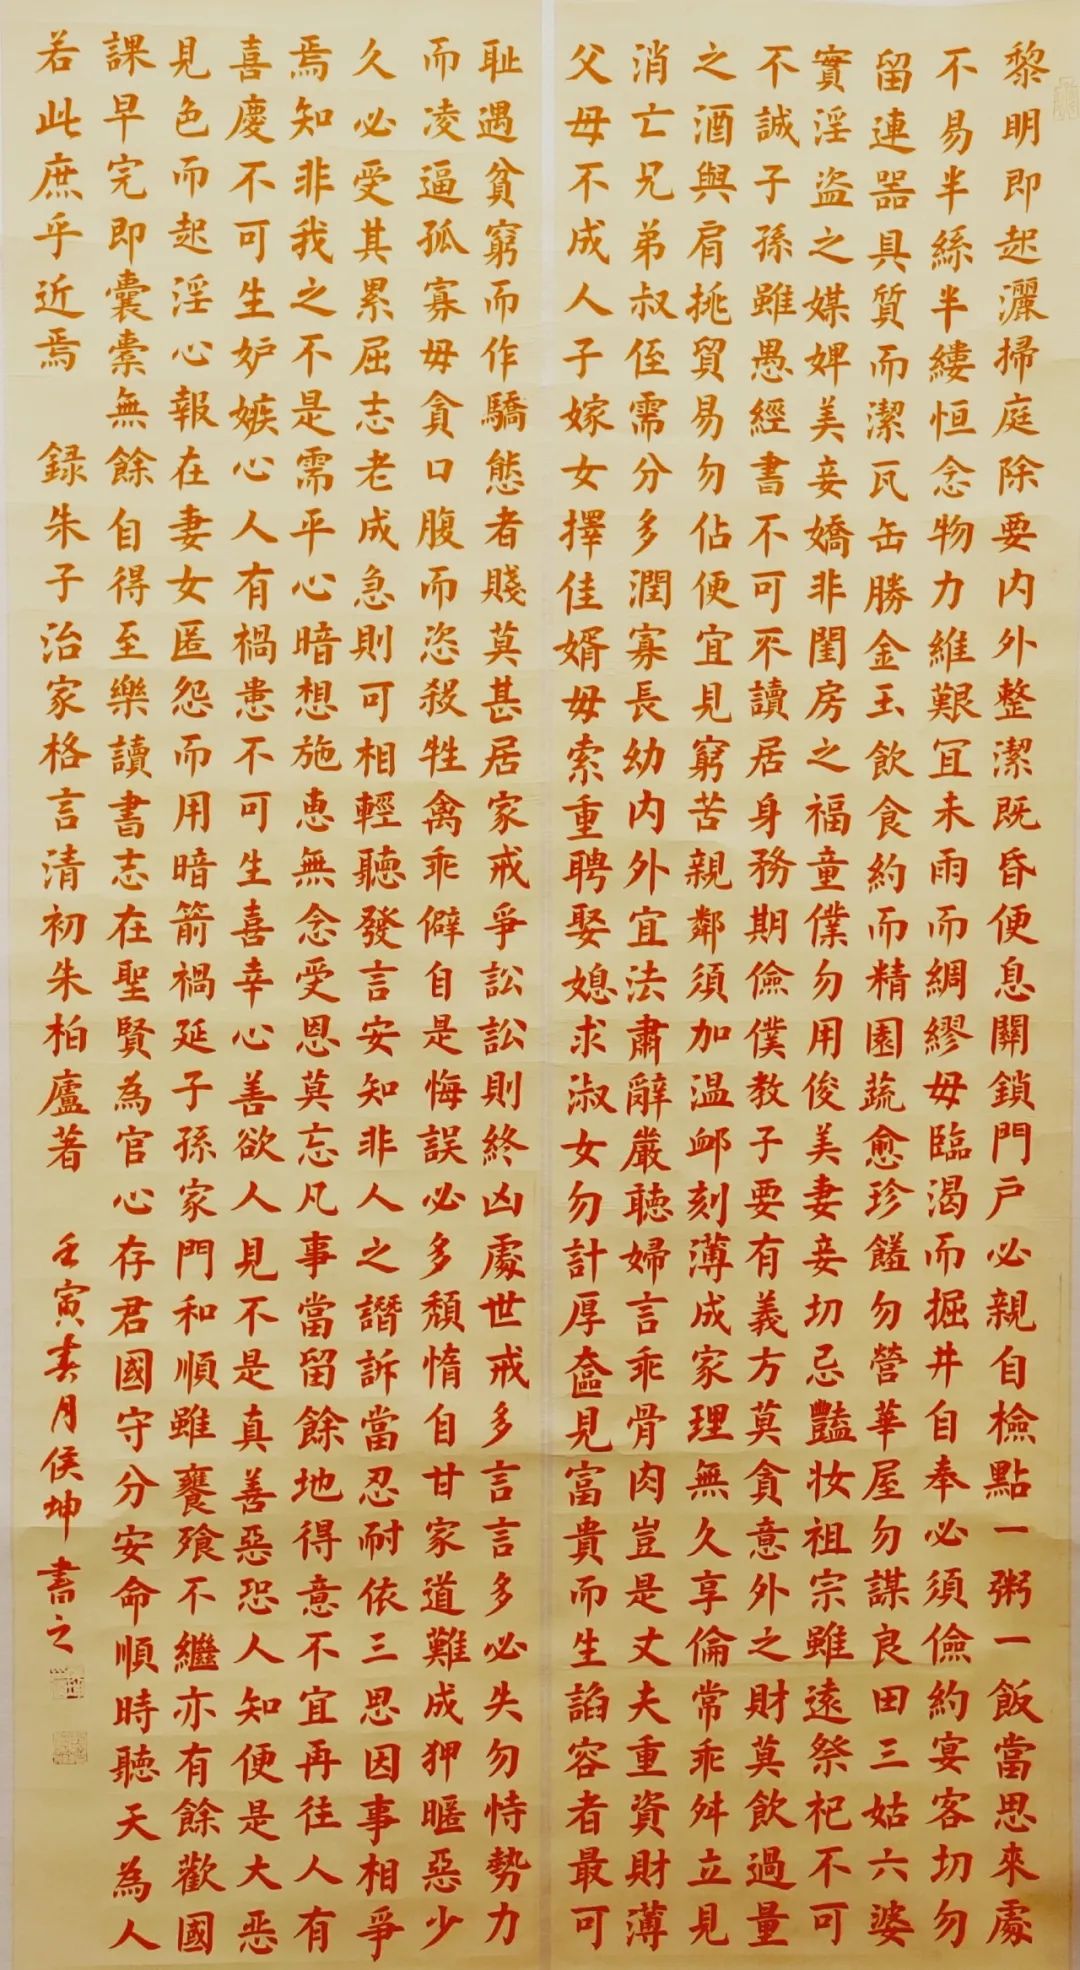 黎明即起灑掃庭除要内外整潔既昏便息關鎖門户必親自檢點一粥一飯當思來處
不易半絲半縷恒念物力維艱宜未雨而綢繆毋臨渴而掘井自奉必須儉約宴客切勿
留連器具質而潔瓦缶勝金玉飲食約而精園蔬愈珍饈勿營華屋勿謀良田三姑六婆
實淫盗之媒婢美妾嬌非閨房之福童僕勿用俊美妻妾切忌豔妝祖宗雖遠祭祀不可
不誠子孫雖愚經書不可不讀居身務期儉僕教子要有義方莫貪意外之財莫飲過量
之酒與肩挑貿易勿佔便宜見窮苦親鄰須加温卹刻薄成家理無久享倫常乖舛立見
消亡兄弟叔侄需分多潤寡長幼内外宜法肅辭嚴聽婦言乖骨肉豈是丈夫重資財薄
父母不成人子嫁女擇佳婿毋索重聘娶媳求淑女勿計厚奩見富貴而生諂容者最可
耻遇貧窮而作驕態者賤莫甚居家戒爭訟訟則終凶處世戒多言言多必失勿恃勢力
而凌逼孤寡毋貪口腹而恣殺牲禽乖僻自是悔誤必多頹惰自甘家道難成狎暱惡少
久必受其累屈志老成急則可相輕聽發言安知非人之譖訴當忍耐依三思因事相爭
焉知非我之不是需平心暗想施惠無念受恩莫忘凡事當留餘地得意不宜再往人有
喜慶不可生妒嫉心人有禍患不可生喜幸心善欲人見不是真善惡恐人知便是大惡
見色而起淫心報在妻女匿怨而用暗箭禍延子孫家門和順雖饔飧不繼亦有餘歡國
課早完即囊橐無餘自得至樂讀書志在聖賢為官心存君國守分安命順時聽天為人
若此庶乎近焉 録朱子治家格言清初朱柏廬著 壬寅春月侯坤書之